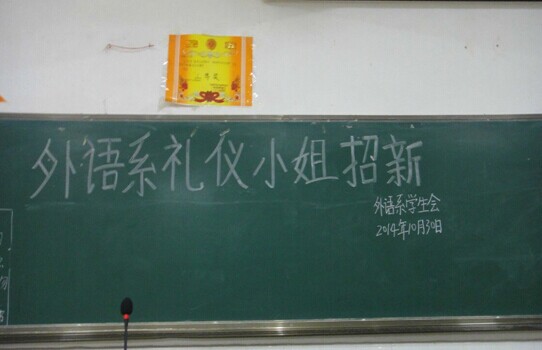 外语系礼仪小姐招新
外语系学生会
2014年10月30日